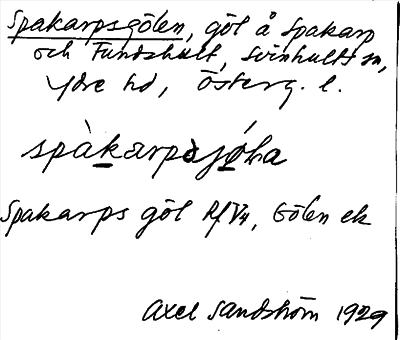 Spakarpsgölen, göl å Spakarp
och Fundshult, Svinhults sn,
Ydre hd, Österg. l.
spàkarpsjö́la
Spakarps göl Rf V4, Gölen ek
Axel Sandström 1929